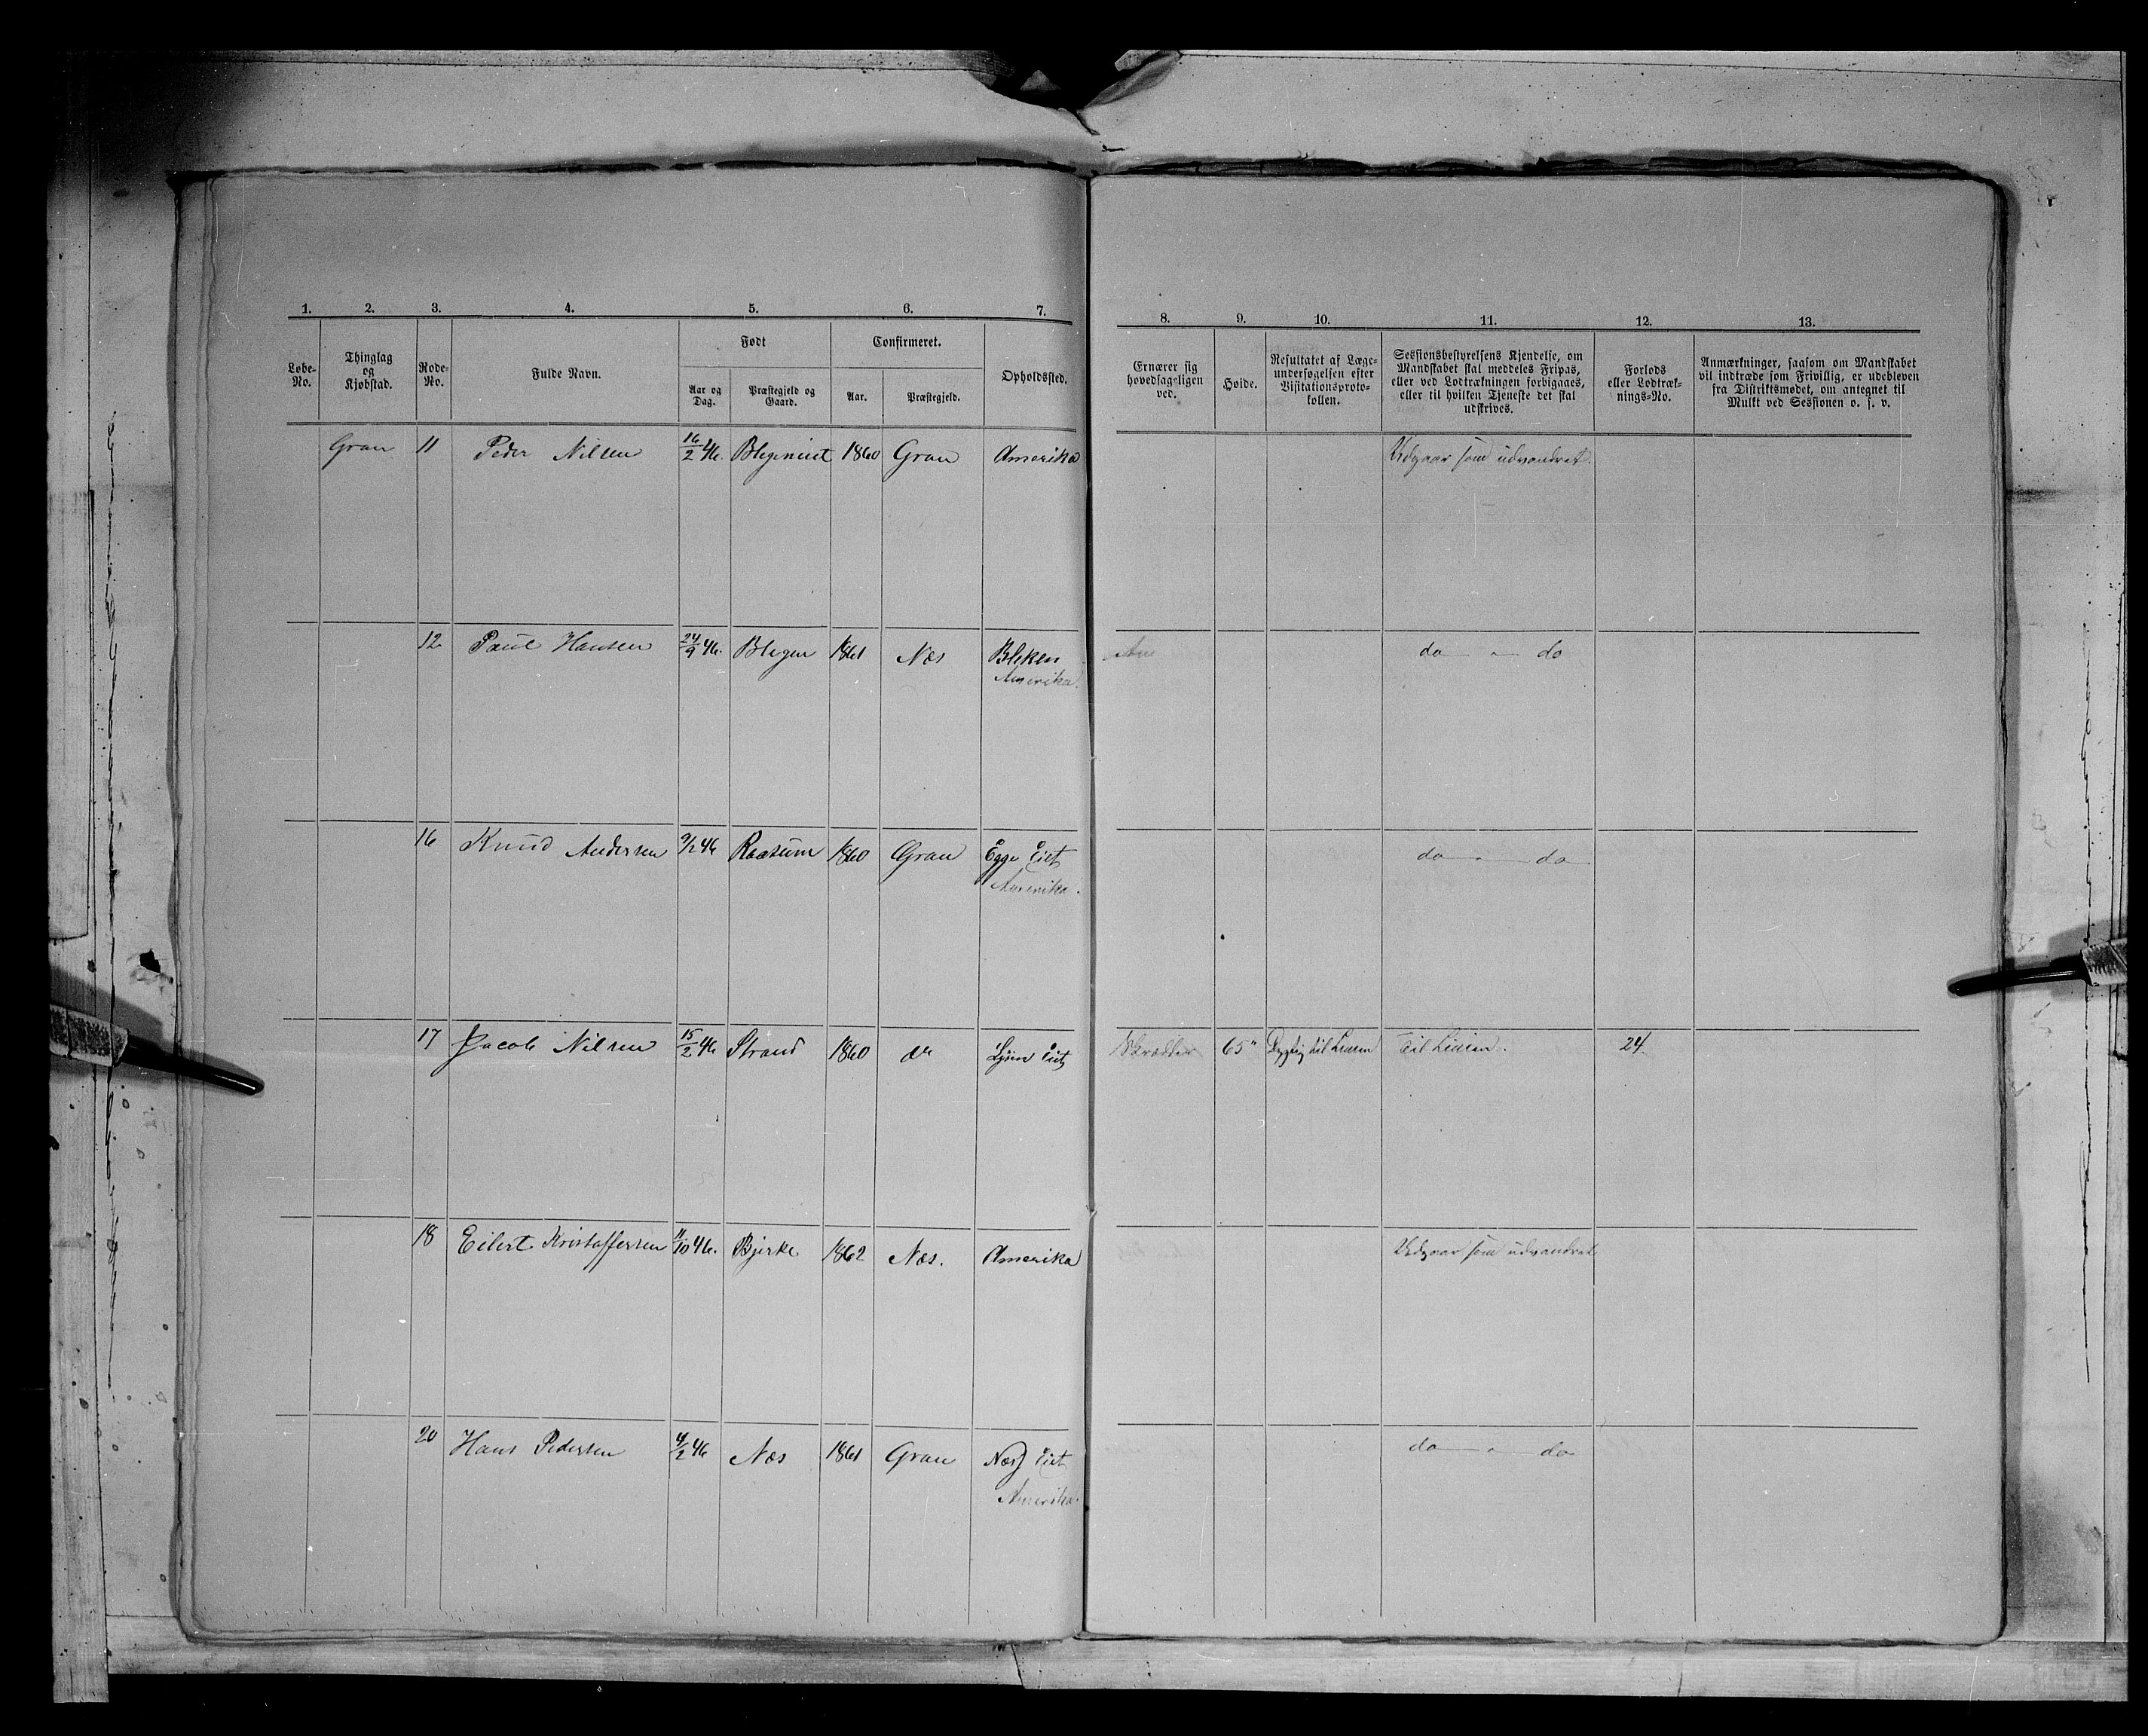 1. 2. 3. 4. 5. 6. 7. 8. 9. 10. 11. 12. 13.
Løbe-No.
Thinglag og Kjøbstad.
Rode-No.
Fulde Navn.
Født
Aar og Dag.
Præstegjeld og Gaard.
Confirmeret.
Aar.
Præstegjeld.
Opholdssted.
Ernærer sig hovedsag-ligen ved.
Høide.
Resultatet af Læge-undersøgelsen efter Visitationsproto-kollen.
Sessionsbestyrelsens Kjendelse, om Mandskabet skal meddeles Fripas, eller ved Lodtrækningen forbigaaes, eller til hvilken Tjeneste det skal udskrives.
Forlods eller Lodtræk-nings-No.
Anmærkninger, saasom om Mandskabet vil indtræde som Frivillig, er udebleven fra Distriktsmødet, om antegnet til Mulkt ved Sessionen o. s. v.
Gran 11 Peder Nilsen 16/2 46. Blegeneiet 1860 Gran Amerika Udgaar som udvandret.
12 Paul Hansen 24/9 46. Blegen 1861 Næs Bleken Am do " do
Amerika.
16 Knud Andersen 9/2 46 Raasum 1860 Gran Egge Eiet do " do
Amerika.
17 Jacob Nilsen 15/2 46 Strand 1860 do Eiet Skrædder 65" Dygtig til Linien Til Linien. 24.
18 Eilert Kristoffersen 11/10 46. Bjerke 1862 Næs. Amerika Udgaar som udvandret
20 Hans Pedersen 4/2 46 Næs 1861 Gran Næs Eiet do " do
Amerika.